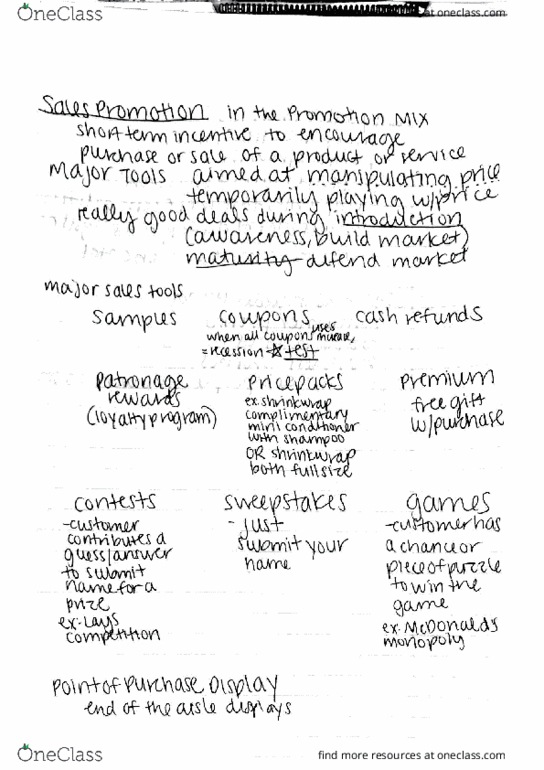 OneClass
at oneclass.com
Sales Promotion in the Promotion Mix
short term incentive to encourage
purchase or sale of a product or service
Major Tools aimed at manipulating price
temporarily playing w/price
really good deals during introduction
(awareness, build market)
maturity defend market
major sales tools
samples coupons cash refunds
when all coupons uses increase,
= recession ☆ test
patronage rewards (loyalty program)
pricepacks
ex. shrinkwrap
complimentary
mini conditioner
with shampoo
OR shrinkwrap
both full size
premium
free gift
w/purchase
contests
-customer
contributes a
guess/answer
to submit
name for a
prize
ex-Lays
competition
sweepstakes
- just
submit your
name
games
-customer has
a chance or
piece of puzzle
to win the
game
ex. McDonald's
monopoly
point of purchase display
end of the aisle displays
OneClass
find more resources at oneclass.com